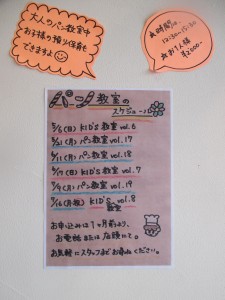 大人のパン教室中
お子様の預り保育も
できますよ
★時間10:
12:30〜15:30
★お1人様
¥2000-
パン教室の
スケジュール
5/5(日) KID'S 教室 vol.6
5/21(月) パン教室 vol.17
6/11(月) パン教室 vol.18
6/17(日) KID'S 教室 vol.7
7/9(月) パン教室 vol.19
7/16(月祝) KID'S 教室 vol.8
お申込みは1ヶ月前より、
お電話または店頭にて。
お気軽にスタッフまでお尋ねください。